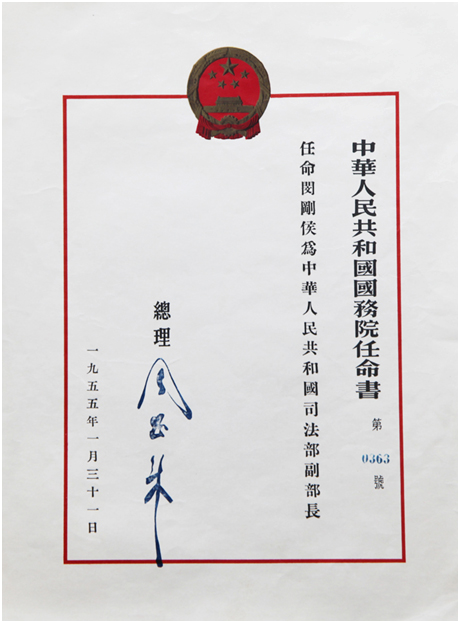 中華人民共和國國務院任命書
第
0363
號
任命閔剛侯爲中華人民共和國司法部副部長
總理
周恩来
一九五五年一月三十一日